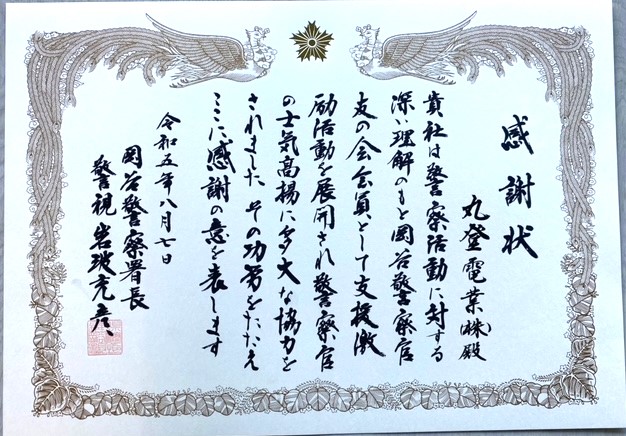 感謝状
丸登電業㈱殿
貴社は警察活動に対する
深い理解のもと岡谷警察官
友の会会員として支援激
励活動を展開され警察官
の士気高揚に多大な協力を
されました その功労をたたえ
ここに感謝の意を表します
令和五年八月七日
岡谷警察署長
警視 岩渕克彦